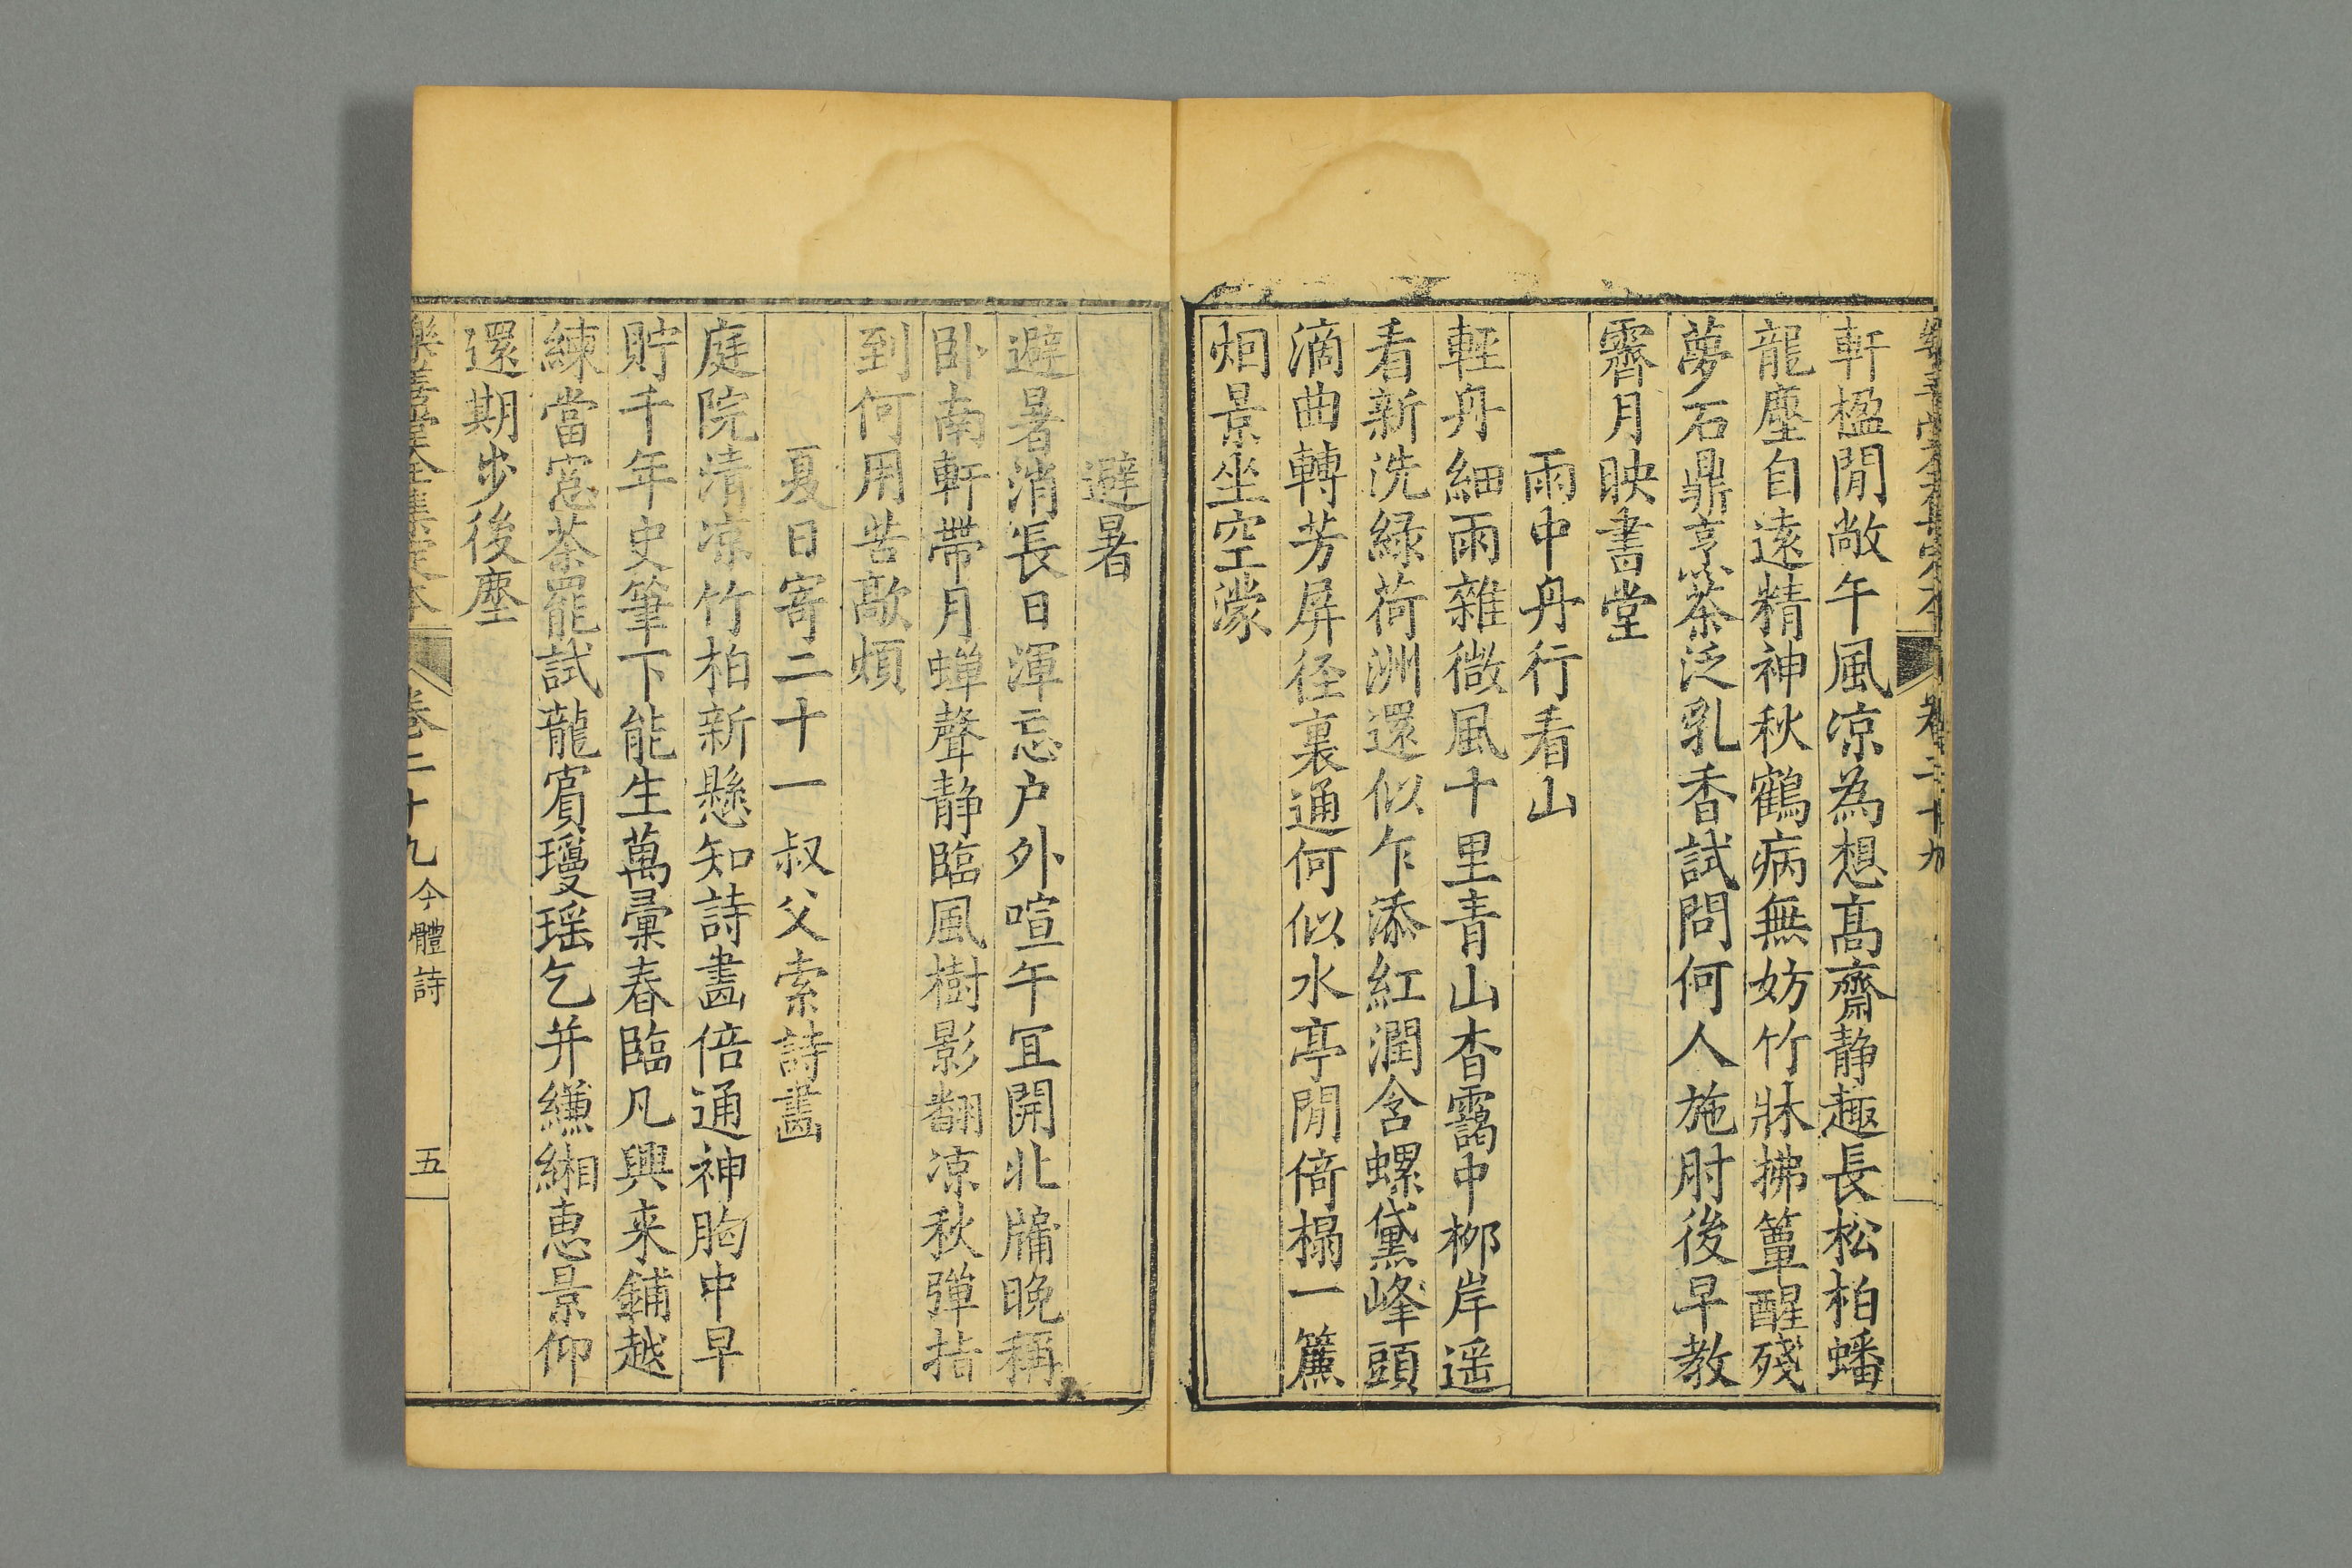 軒楹閒敞午風凉為想髙齋静趣長松柏蟠
龍塵自遠精神秋鶴病無妨竹牀拂簟醒殘
夢石鼎烹茶泛乳香試問何人施肘後早教
霽月映書堂
雨中舟行看山
輕舟細雨雜微風十里青山杳靄中柳岸遥
看新洗緑荷洲還似乍添紅潤含螺黛峰頭
滴曲轉芳屏径裏通何似水亭閒倚榻一簾
烟景坐空濛
避暑
避暑消長日渾忘户外喧午冝開北牖晚稱
卧南軒帶月蟬聲静臨風樹影翻凉秋彈指
到何用苦歊煩
夏日寄二十一叔父索詩畫
庭院清凉竹柏新懸知詩畫倍通神胸中早
貯千年史筆下能生萬彚春臨凡興来鋪越
練當窓茶罷試龍賔瓊瑶乞并縑緗惠景仰
還期步後塵
樂善堂全集定本 卷二十九 今體詩 五